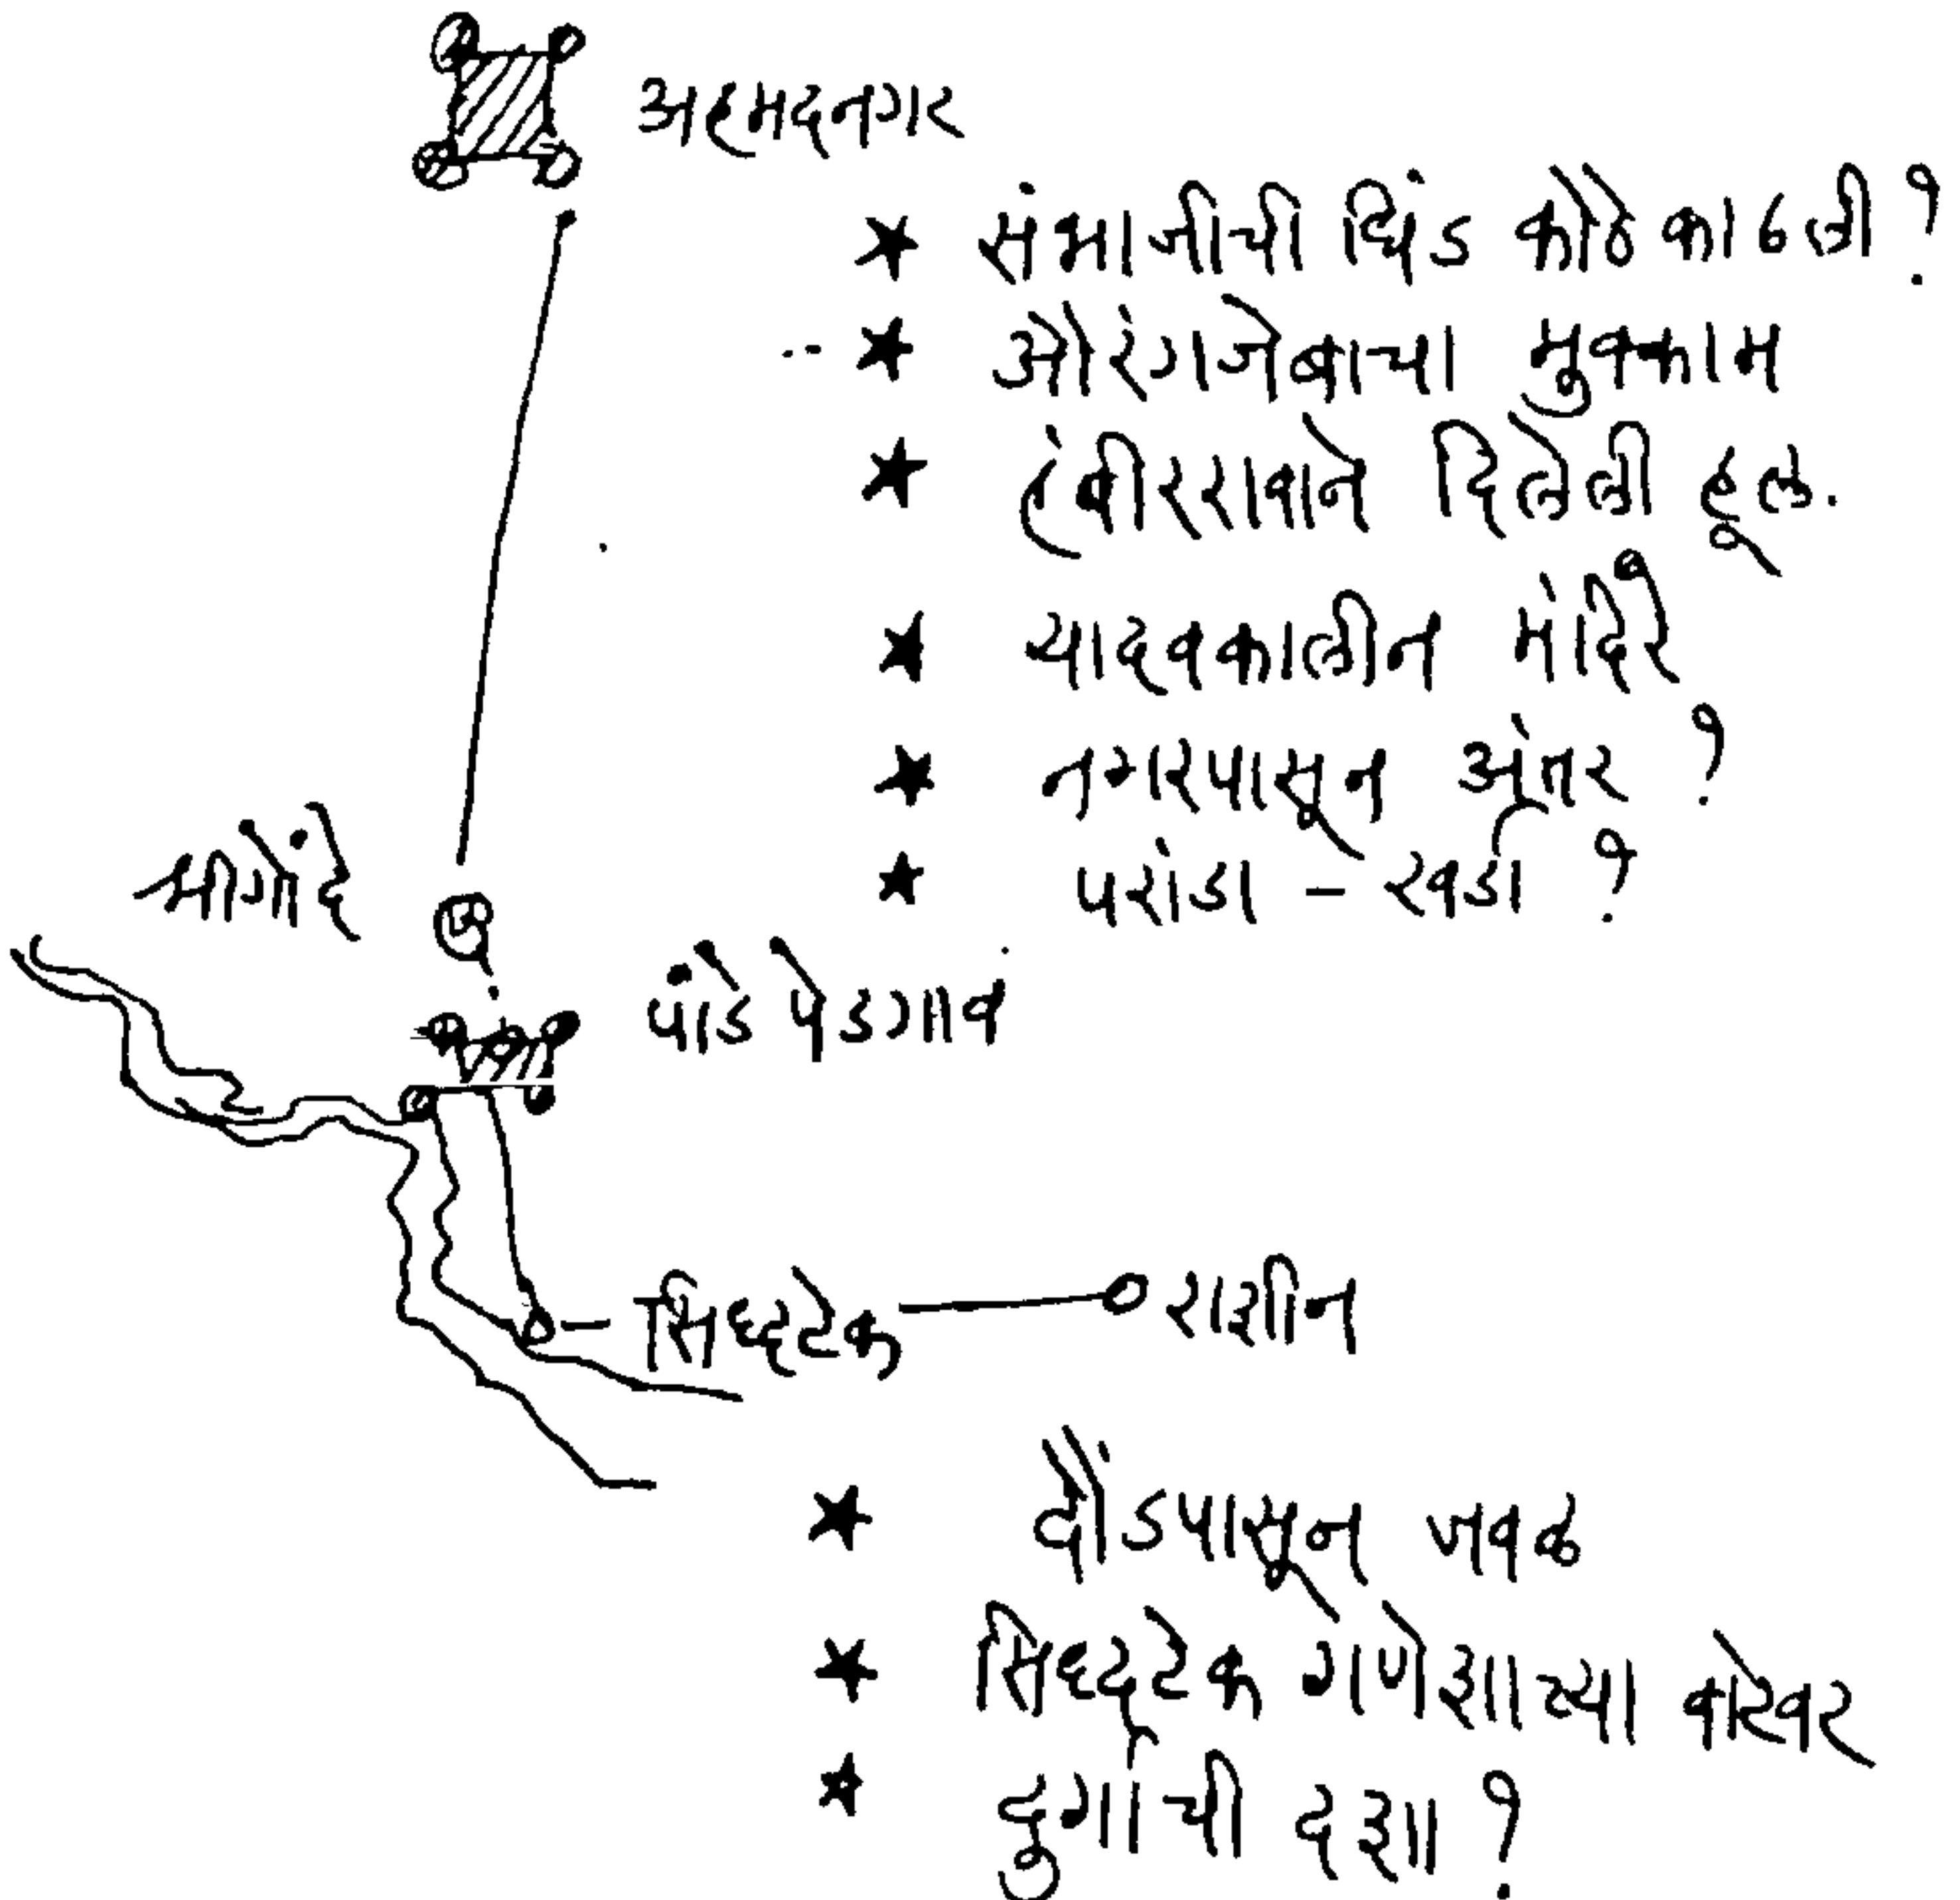 अहमदनगर
★ संभाजीची धिंड कोठे काढली ?
★ औरंगजेबाचा मुक्काम
★ हंबीररावाने दिलेली हूल.
★ यादवकालीन मंदिरे
★ नगरपासून अंतर ?
★ परांडा - खर्डा ?
श्रीगोंदे
पांडे पेडगाव
सिध्दटेक राशीन
★ दौंडपासून जवळ
★ सिध्दटेक गणेशाच्या वाटेवर
★ दुर्गाची दशा ?